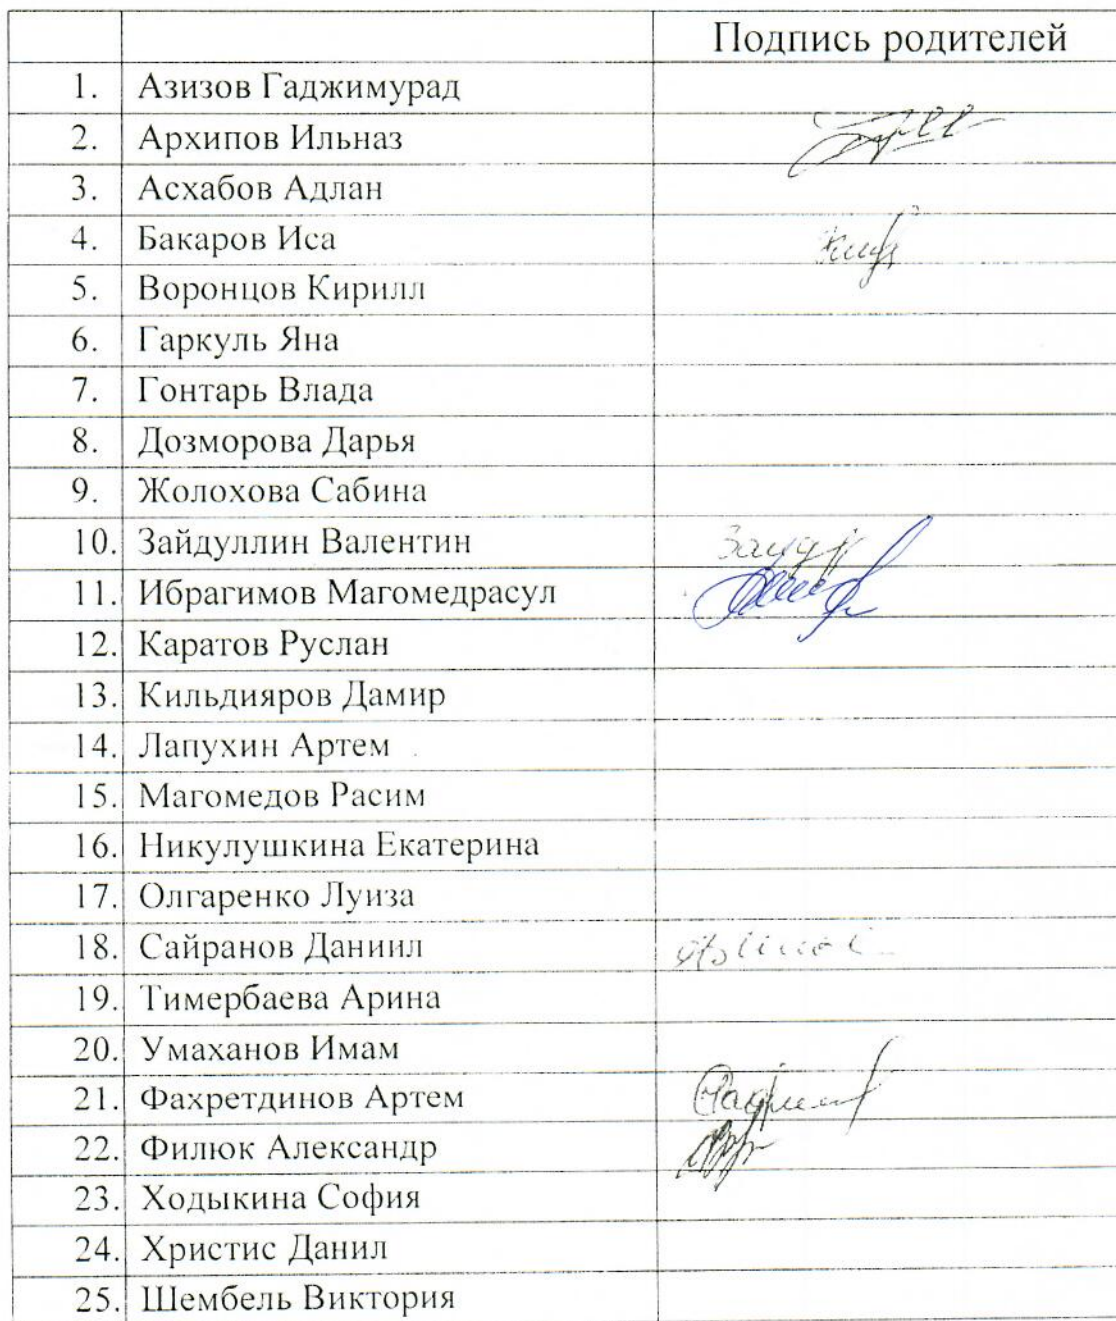 Подпись родителей
1. Азизов Гаджимурад
2. Архипов Ильназ
3. Асхабов Адлан
4. Бакаров Иса
5. Воронцов Кирилл
6. Гаркуль Яна
7. Гонтарь Влада
8. Дозморова Дарья
9. Жолохова Сабина
10. Зайдуллин Валентин
11. Ибрагимов Магомедрасул
12. Каратов Руслан
13. Кильдияров Дамир
14. Лапухин Артем
15. Магомедов Расим
16. Никулушкина Екатерина
17. Олгаренко Луиза
18. Сайранов Даниил
19. Тимербаева Арина
20. Умаханов Имам
21. Фахретдинов Артем
22. Филюк Александр
23. Ходыкина София
24. Христис Данил
25. Шембель Виктория